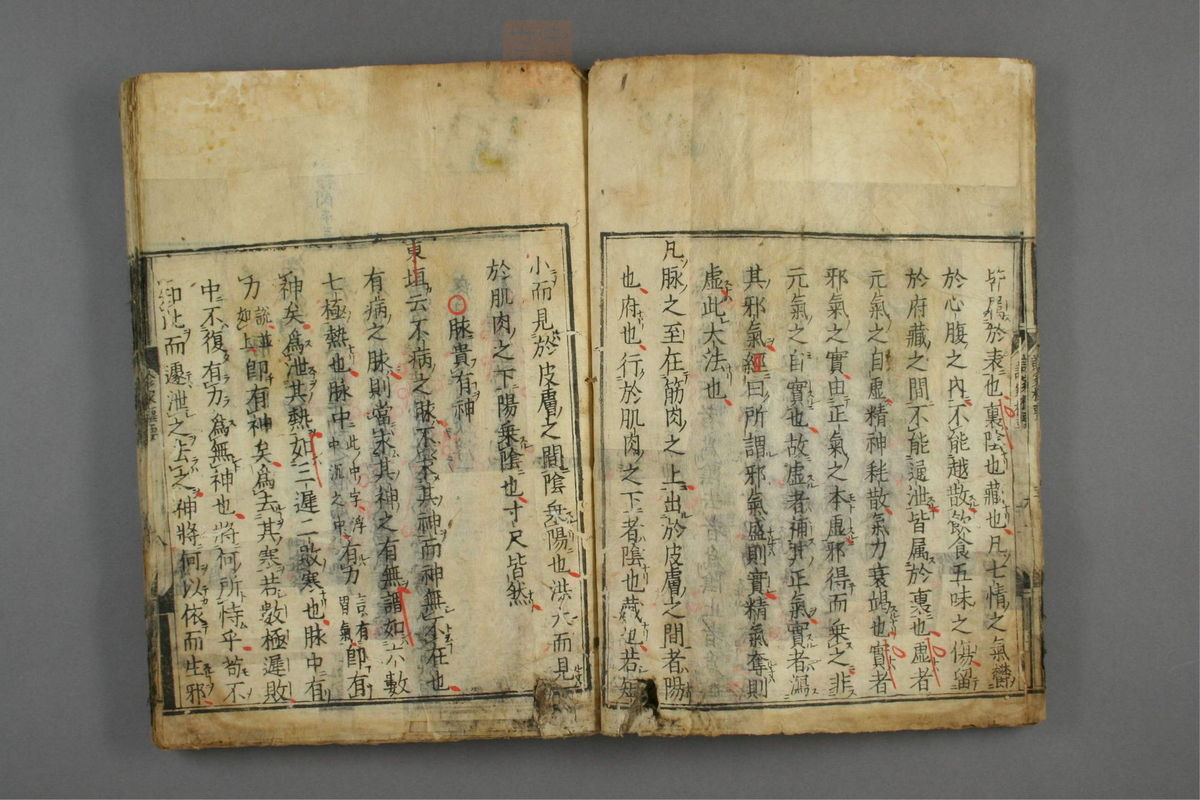 皆属於表也裏陰也藏也凡七情之氣鬱
於心腹之內不能越散飲食五味之傷留
於府藏之間不能通泄皆属於裏也虛者
元氣之自虛精神耗散氣力衰竭也實者
邪氣之實由正氣之本虛邪得而乘之非
元氣之自實也故虛者補其正氣實者瀉
其邪氣經曰所謂邪氣盛則實精氣奪則
虛此大法也
凡脉之至在筋肉之上出於皮膚之間者陽
也府也行於肌肉之下者陰也藏也若短
小而見於皮膚之間陰乘陽也洪大而見
於肌肉之下陽乘陰也寸尺皆然
脉貴有神
東垣云不病之脉不求其神而神無不在也
有病之脉則當求其神之有無謂如六數
七極熱也脉中此中字浮中沉之中有力言有胃氣即有
神矣為泄其熱如三遲二敗寒也脉中有
力說並如上即有神矣為去其寒若數極遲敗
中不復有力為無神也將何所恃乎苟不
知此而遽泄之去之神將何以依而生邪